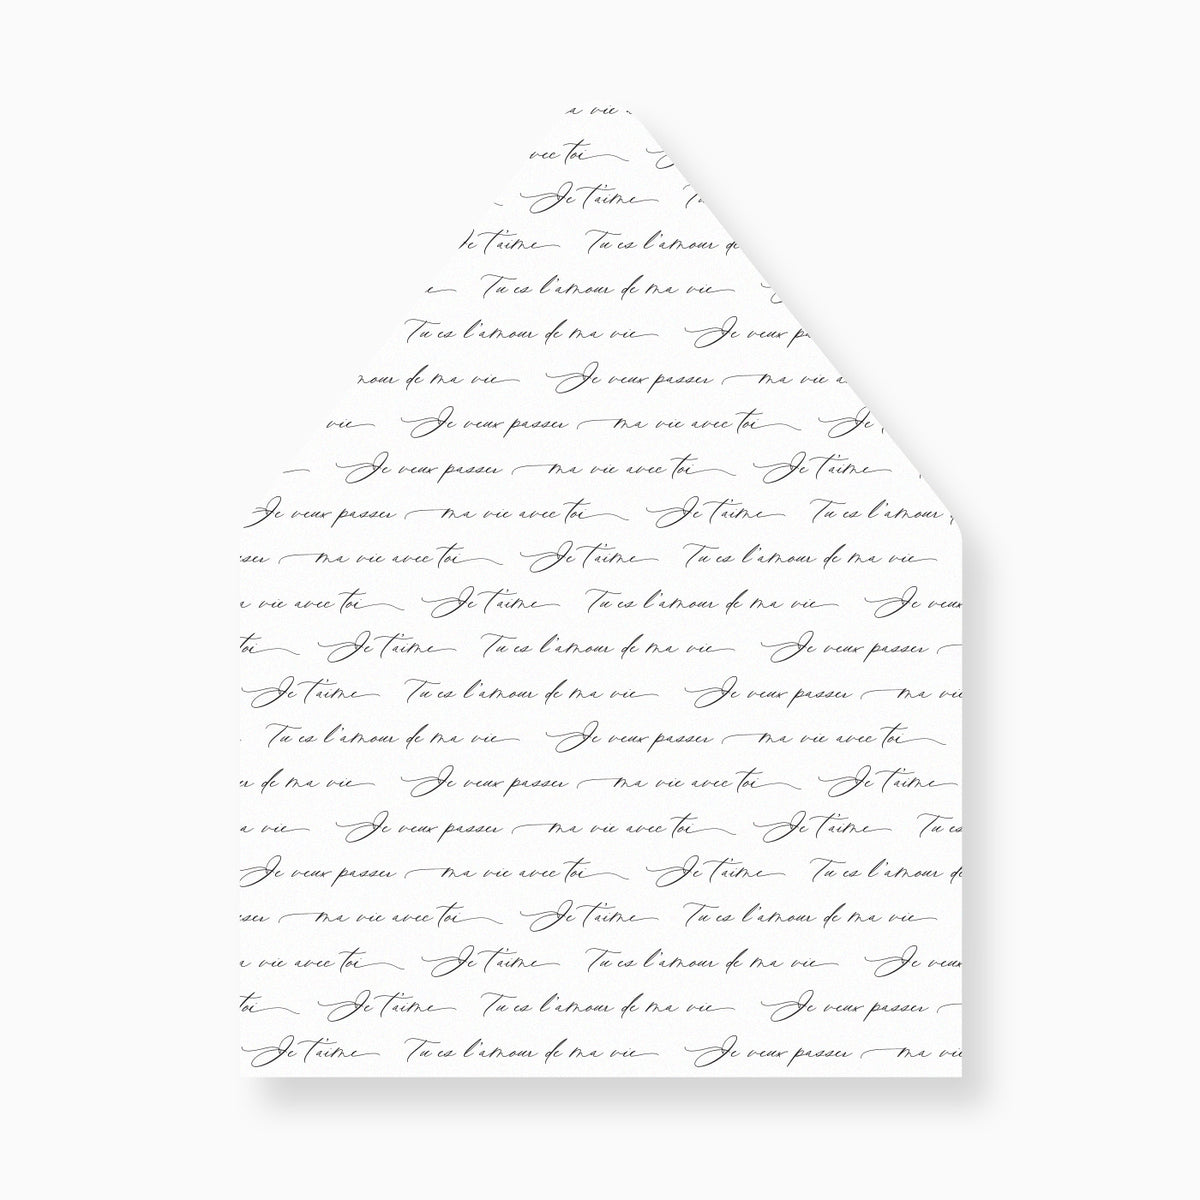 a vie
vec toi
Je t'aime Tu
Je t'aime Tu es l'amour de
e Tu es l'amour de ma vie
Tu es l'amour de ma vie Je veux pa
mour de ma vie Je veux passer ma vie a
vie Je veux passer ma vie avec toi Je t
Je veux passer ma vie avec toi Je t'aime
Je veux passer ma vie avec toi Je t'aime Tu es l'amour
sser ma vie avec toi Je t'aime Tu es l'amour de ma vie
a vie avec toi Je t'aime Tu es l'amour de ma vie Je veux
toi Je t'aime Tu es l'amour de ma vie Je veux passer
Je t'aime Tu es l'amour de ma vie Je veux passer ma vie
Tu es l'amour de ma vie Je veux passer ma vie avec toi
r de ma vie Je veux passer ma vie avec toi Je t'aime
a vie Je veux passer ma vie avec toi Je t'aime Tu es
Je veux passer ma vie avec toi Je t'aime Tu es l'amour de
sser ma vie avec toi Je t'aime Tu es l'amour de ma vie
a vie avec toi Je t'aime Tu es l'amour de ma vie Je veux
toi Je t'aime Tu es l'amour de ma vie Je veux passer
Je t'aime Tu es l'amour de ma vie Je veux passer ma vie